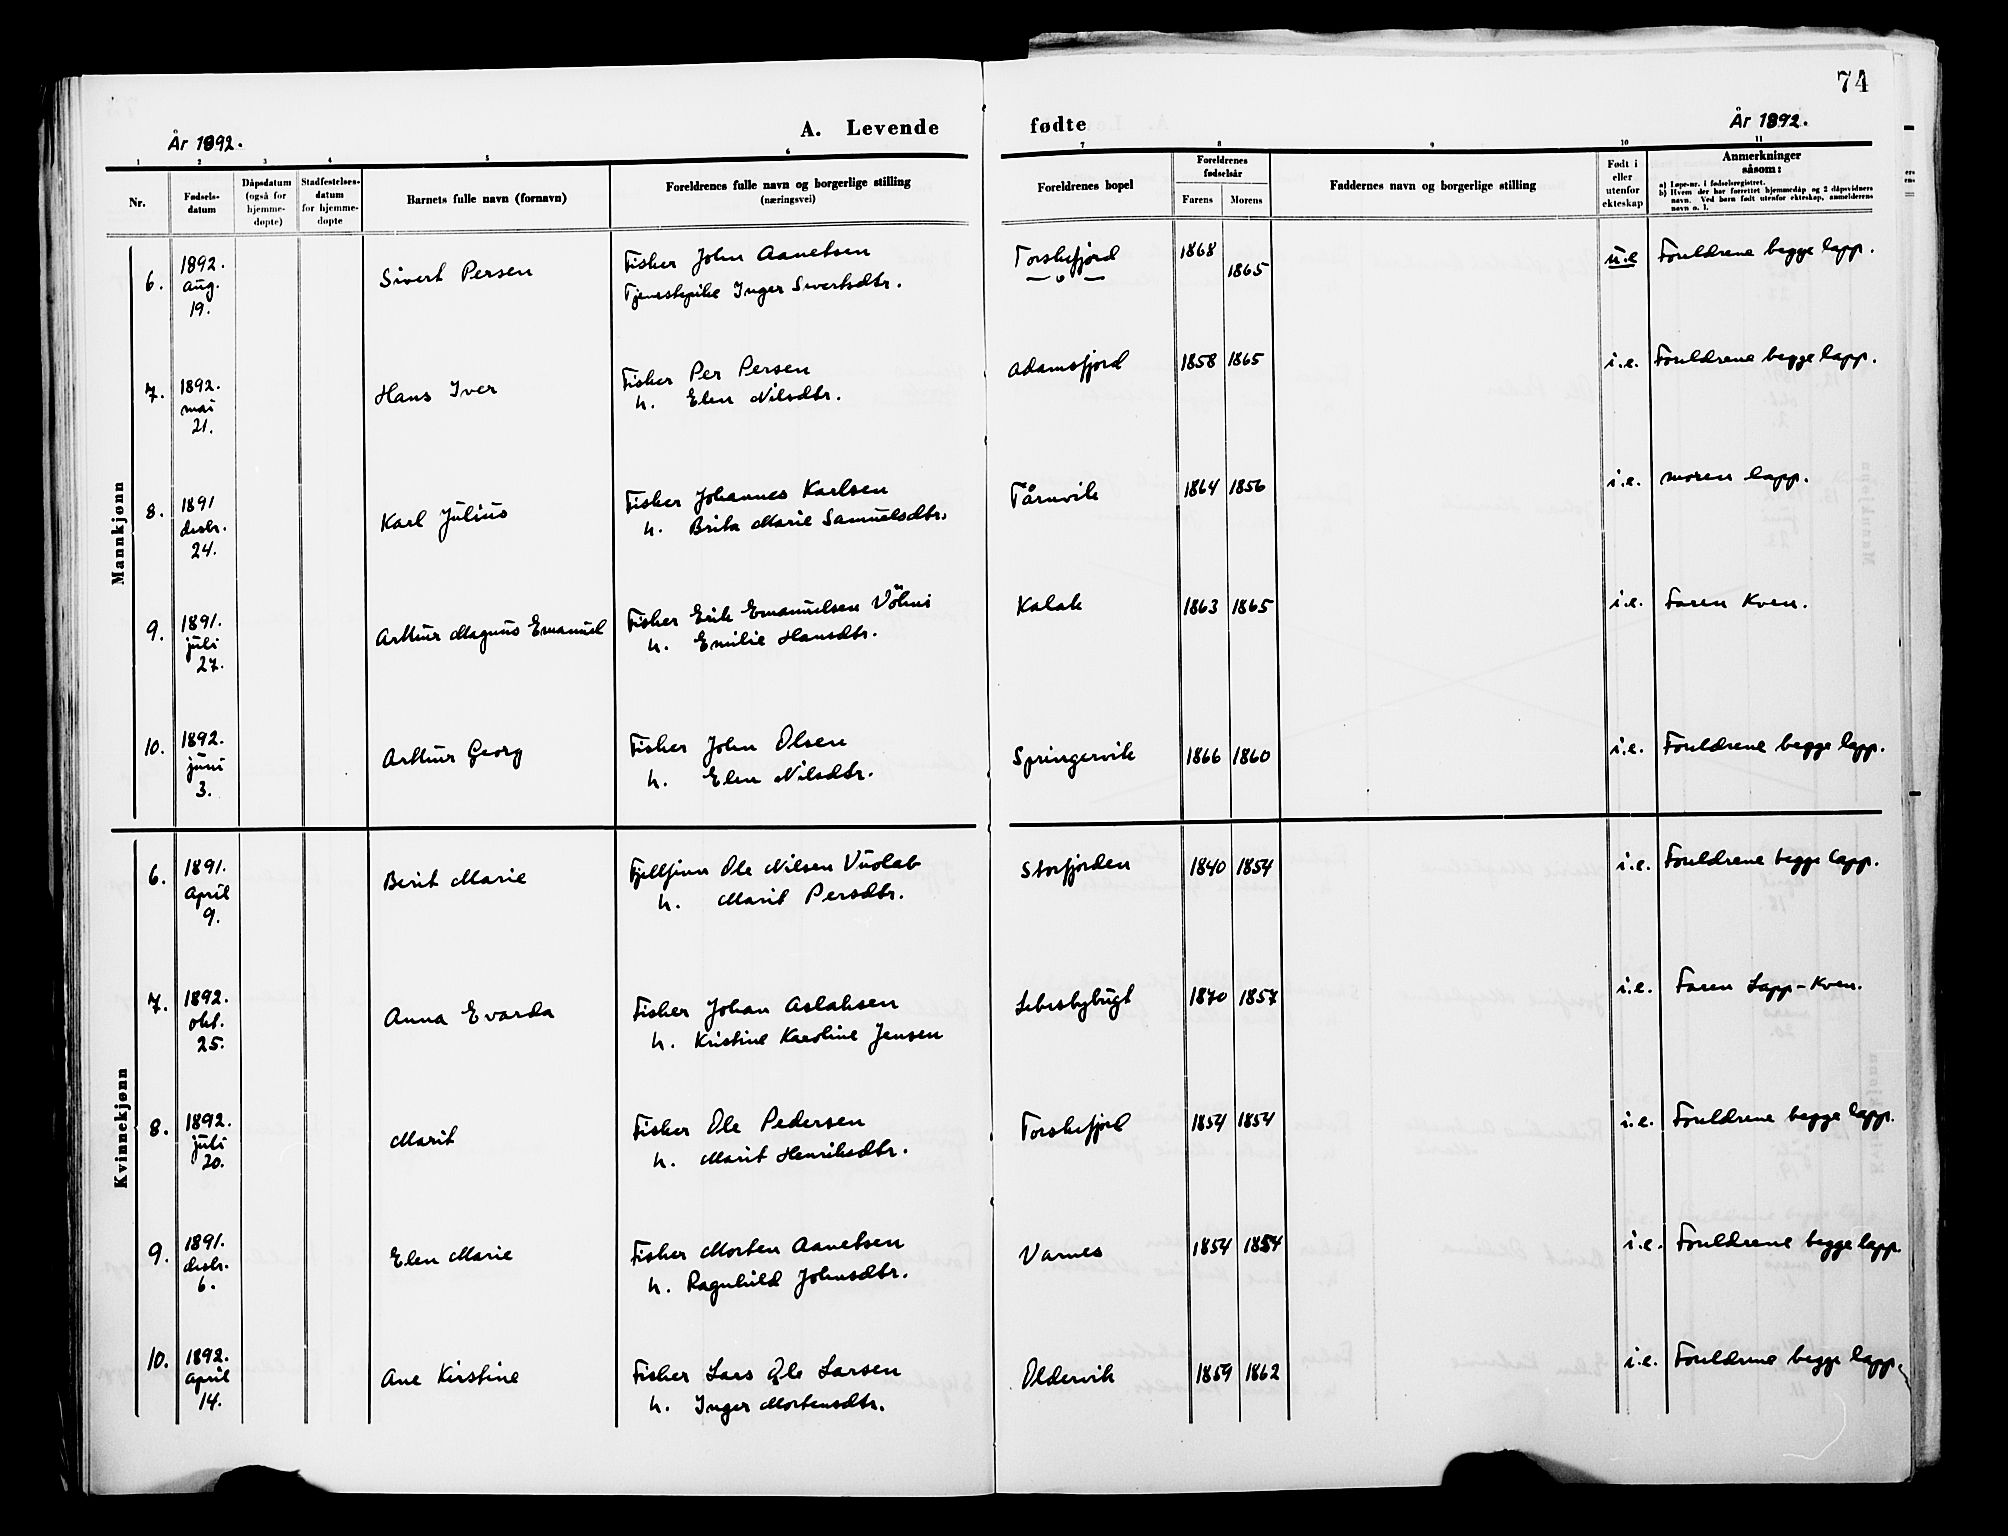 74
År 1892.
A. Levende
fødte
År 1892.
1 2 3 4 5 6 7 8 9 10 11
Nr.
Fødsels-
datum
Dåpsdatum
(også for
hjemme-
døpte)
Stadfestelses-
datum
for hjemme-
døpte
Barnets fulle navn (fornavn)
Foreldrenes fulle navn og borgerlige stilling
(næringsvei)
Foreldrenes bopel
Foreldrenes
fødselsår
Farens Morens
Faddernes navn og borgerlige stilling
Født i
eller
utenfor
ekteskap
Anmerkninger
såsom:
a) Løpe-nr. i fødselsregistret.
b) Hvem der har forrettet hjemmedåp og 2 dåpsvidners
navn. Ved barn født utenfor ekteskap, anmelderens
navn o. l.
Mannkjønn
6.
1892.
Aug.
19.
Sivert Persen
Fisker John Aanetsen
Tjenestepike Inger Sivertsdtr.
Torskefjord
— " —
1868
1865
u.e
Foreldrene begge lapp.
7.
1892.
mai
21.
Hans Iver
Fisker Per Persen
h. Elen Nilsdtr.
Adamsfjord
1858 1865
i.e.
Foreldrene begge lapp.
8.
1891
desbr.
24.
Karl Julius
Fisker Johannes Karlsen
h. Brita Marie Samuelsdtr.
Tårnvik
1864 1856
i.e.
moren lapp.
9.
1891.
juli
27.
Arthur Magnus Emanuel
Fisker Erik Emanuelsen
h. Emilie Hansdtr.
Kalak
1863 1865
i.e.
Faren Kven.
10.
1892.
juni
3.
Arthur Georg
Fisker John Olsen
h. Elen Nilsdtr.
Springervik
1866 1860
i.e.
Foreldrene begge lapp.
Kvinnekjønn
6.
1891.
April
9.
Berit Marie
Fjellfinn Ole Nilsen Vuolab
h. Marit Persdtr.
Storfjorden
1840 1854
i.e.
Foreldrene begge lapp.
7.
1892.
okt.
25.
Anna Evarda
Fisker Johan Aslaksen
h. Kristine Karoline Jensen
Lebesbybugt
1870 1857
i.e.
Faren Lapp-Kven.
8.
1892.
juli
20.
Marit
Fisker Ole Pedersen
h. Marit Henriksdtr.
Torskefjord
1854 1854
i.e.
Foreldrene begge lapp.
9.
1891.
desbr.
6.
Elen Marie
Fisker Morten Aanetsen
h. Ragnhild Johnsdtr.
Varnes
1854 1854
i.e.
Foreldrene begge lapp.
10.
1892.
April
14.
Ane Kirstine
Fisker Lars Ole Larsen
h. Inger Mortensdtr.
Oldervik
1859 1862
i.e.
Foreldrene begge lapp.